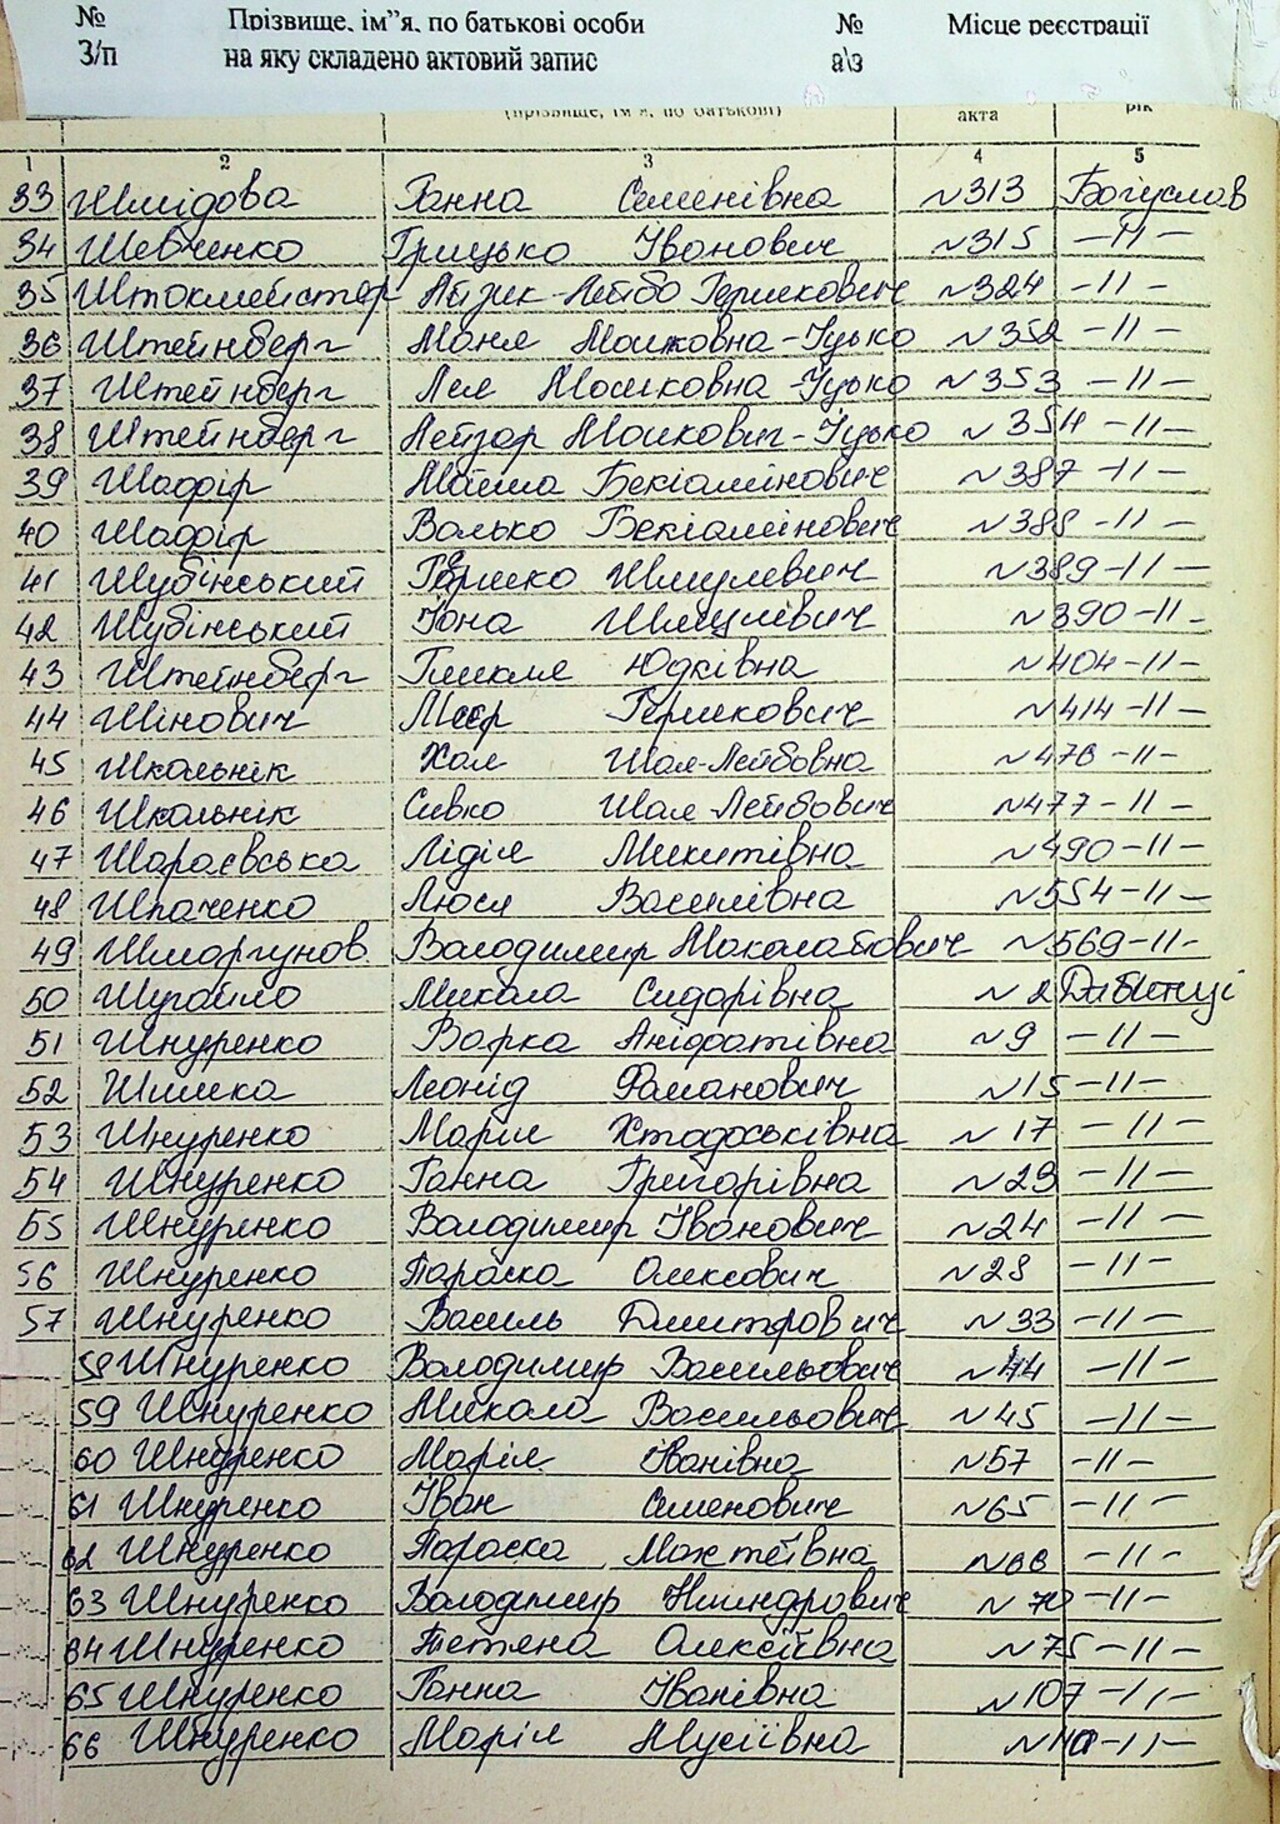 № Прізвище, ім"я, по батькові особи № Місце реєстрації
З/п на яку складено актовий запис а\з
(прізвище, ім'я, по батькові) акта рік
1 2 3 4 5
33 Шмідова Ганна Семенівна №313 Богуслав
34 Шевченко Грицько Іванович №315 -11-
35 Штокмейстер Айзик-Лейбо Гершкович №324 -11-
36 Штейнберг Маня Мошковна-Іцько №352 -11-
37 Штейнберг Лея Мошковна-Іцько №353 -11-
38 Штейнберг Лейзор Мошкович-Іцько №354 -11-
39 Шафір Мойша Бекіамінович №387 -11-
40 Шафір Волько Бекіамінович №388 -11-
41 Шубінський Гершко Шмулевич №389 -11-
42 Шубінський Іона Шмулевич №390 -11-
43 Штейнберг Юдківна №404 -11-
44 Шінович Меєр Гершкович №414 -11-
45 Школьнік Хая Шая-Лейбовна №476 -11-
46 Школьнік Сивко Шая Лейбович №477 -11-
47 Шараєвська Лідія Микитівна №490 -11-
48 Шпаченко Люся Василівна №554 -11-
49 Шмаргунов Володимир №569 -11-
50 Шугайло Микола Сидорівна №2 Дибинці
51 Шнуренко Варка Аніфатівна №9 -11-
52 Шишка Леонід Романович №15 -11-
53 Шнуренко Марія №17 -11-
54 Шнуренко Ганна Григорівна №23 -11-
55 Шнуренко Володимир Іванович №24 -11-
56 Шнуренко Параска Олексович №28 -11-
57 Шнуренко Василь Дмитрович №33 -11-
58 Шнуренко Володимир Васильович №44 -11-
59 Шнуренко Микола Васильович №45 -11-
60 Шнуренко Марія Іванівна №57 -11-
61 Шнуренко Іван Семенович №65 -11-
62 Шнуренко Параска №66 -11-
63 Шнуренко Володимир №70 -11-
64 Шнуренко Тетяна Олексіївна №75 -11-
65 Шнуренко Ганна Іванівна №107 -11-
66 Шнуренко Марія Мусіївна -11-